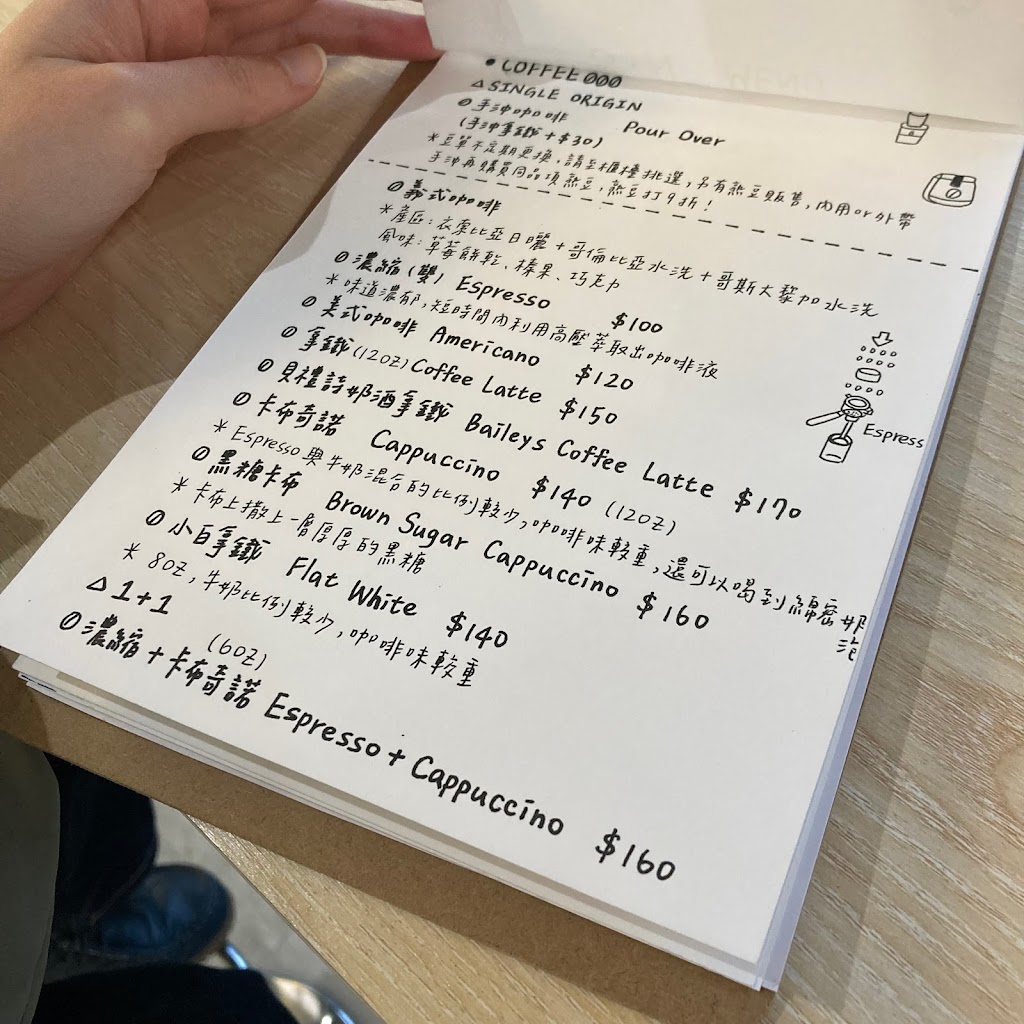 • COFFEE
△ SINGLE ORIGIN
手沖咖啡 Pour Over
(手沖拿鐵+$30)
*豆單不定期更換,請至櫃檯挑選,另有熟豆販售,內用or外帶
手沖再購買同品項熟豆,熟豆打9折!
義式咖啡
*產區:衣索比亞日曬+哥倫比亞水洗+哥斯大黎加水洗
風味:草莓餅乾、榛果、巧克力
濃縮(雙) Espresso $100
*味道濃郁,短時間內利用高壓萃取出咖啡液
美式咖啡 Americano $120
拿鐵(12OZ) Coffee Latte $150
貝禮詩奶酒拿鐵 Baileys Coffee Latte $170
卡布奇諾 Cappuccino $140 (12OZ)
*Espresso與牛奶混合的比例較少,咖啡味較重,還可以喝到綿密奶泡
黑糖卡布 Brown Sugar Cappuccino $160
*卡布上撒上一層厚厚的黑糖
小白拿鐵 Flat White $140
*8OZ,牛奶比例較少,咖啡味較重
△ 1+1
(6OZ)
濃縮+卡布奇諾 Espresso+Cappuccino $160
Espress